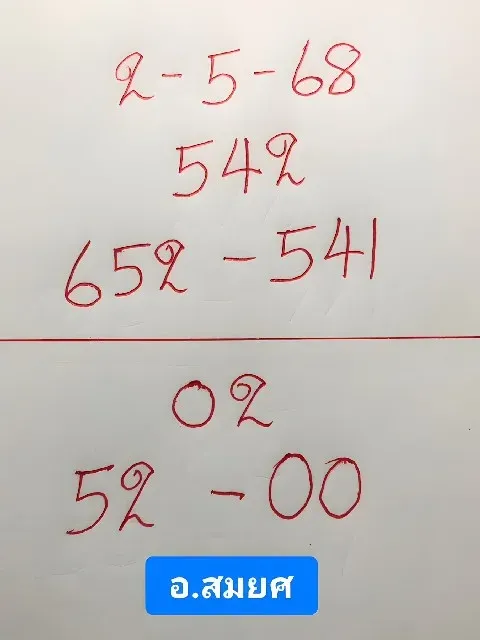 2-5-68
542
652 - 541
02
52 - 00
อ.สมยศ